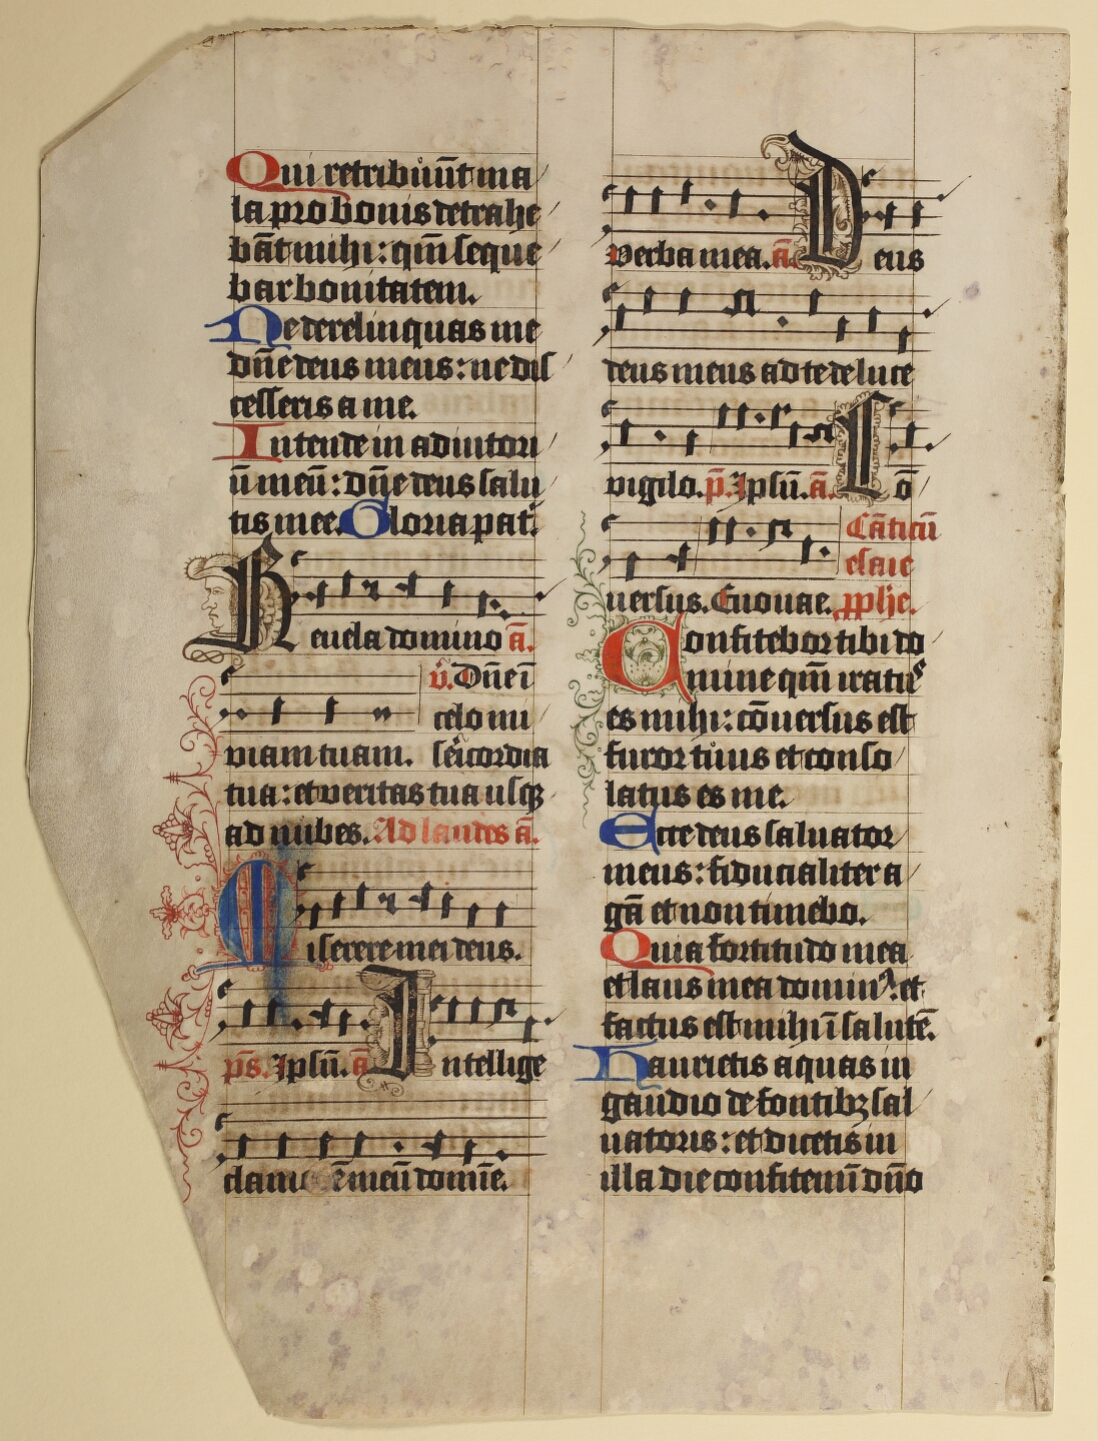 Qui retribuūt ma
la pro bonis detrahe
bāt mihi: qm̄ seque
bar bonitatem.
Ne derelinquas me
dn̄e deus meus: ne dis
cesseris a me.
Intende in adiutori
ū meū: dn̄e deus salu
tis mee. Gloria pat
Reuela domino a̅.
v̄. Dn̄e ī
celo mi
viam tuam. sēicordia
tua: et veritas tua usq
ad nubes. Ad laudes a̅.
Miserere mei deus.
p̄s. Ipsū. a̅ Intellige
clamo ē meū domīe.
verba mea. a̅. Deus
deus meus ad te de luce
vigilo. p̄. Ipsū. a̅. Cō
Cāticū
esaie
uersus. Euouae. pphe.
Confitebor tibi do
mine qm̄ iratus
es mihi: cōuersus est
furor tuus et conso
latus es me.
Ecce deus saluator
meus: fiducialiter a
gā et non timebo.
Quia fortitudo mea
et laus mea domin: et
factus est mihi ī salutē.
Haurietis aquas in
gaudio de fontibꝫ sal
uatoris: et dicetis in
illa die confitemī dn̄o